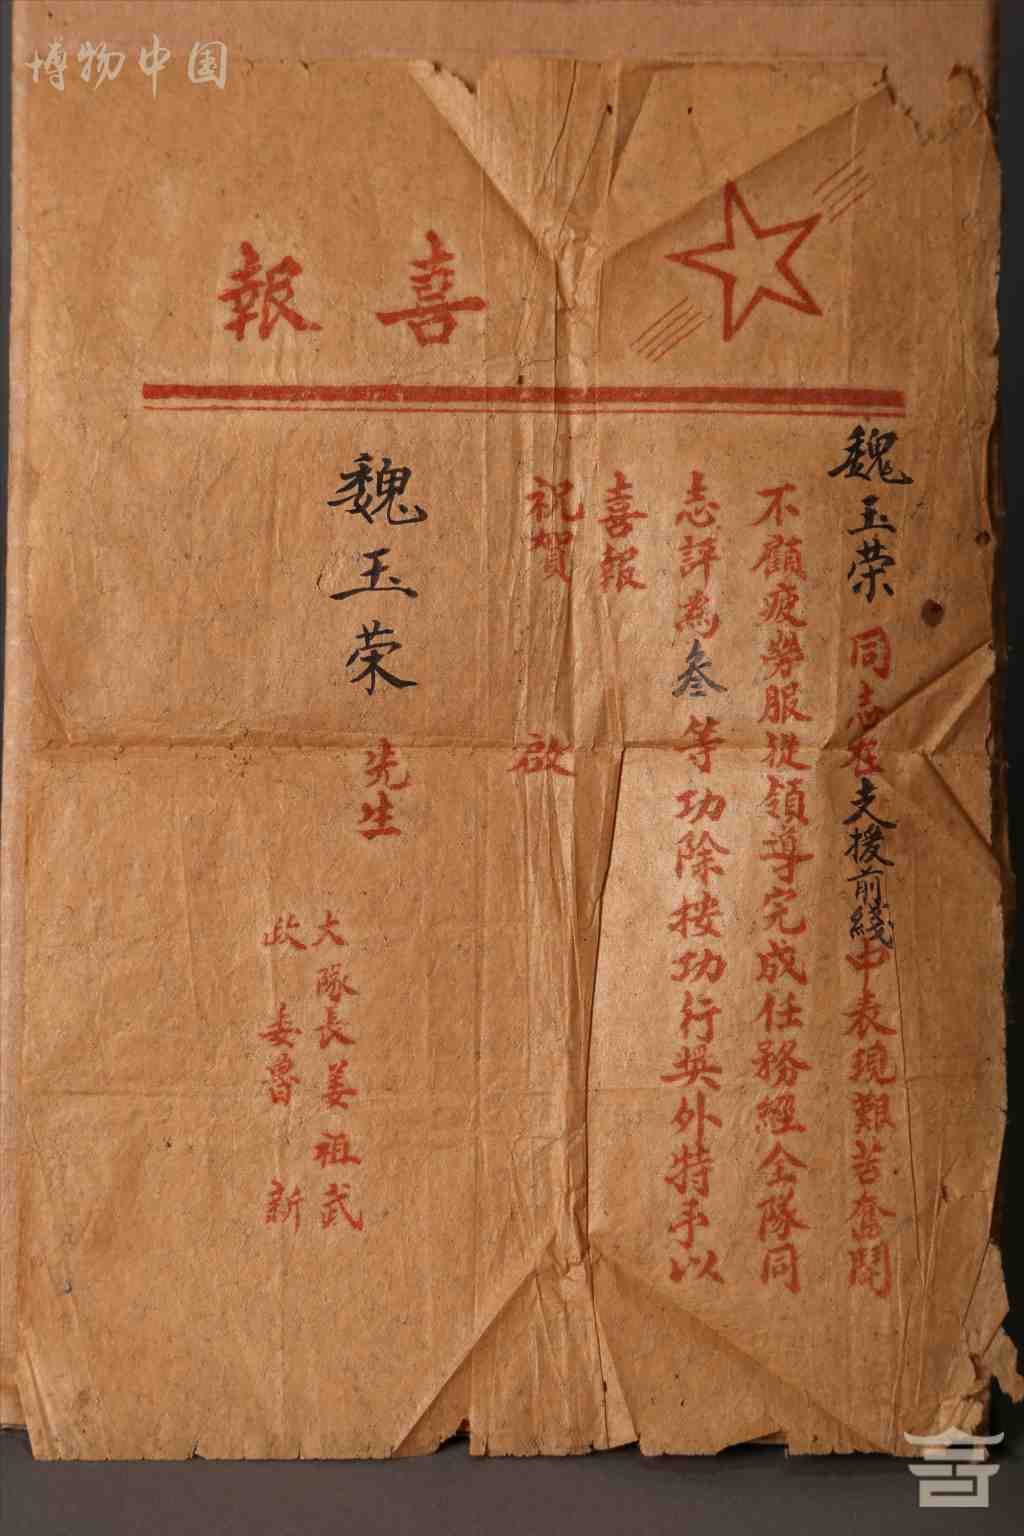 博物中国
喜報
魏玉荣同志在支援前綫中表現艱苦奮鬪
不顧疲勞服從領導完成任務經全隊同
志評為叁等功除按功行奖外特予以
喜報
祝賀 啟
魏玉荣先生
大隊長姜祖武
政委魯新